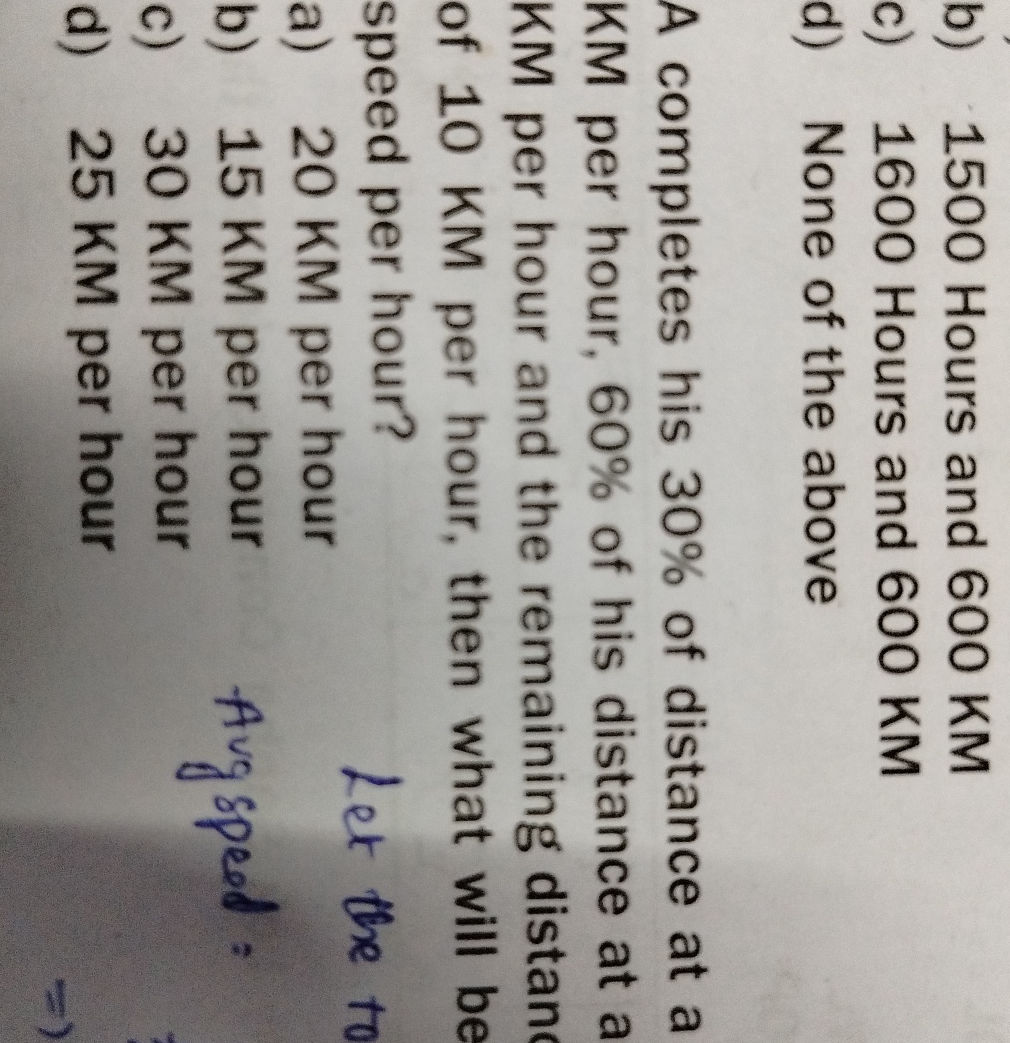 b) 1500 Hours and 600 KM
c) 1600 Hours and 600 KM
d) None of the above
A completes his 30% of distance at a
KM per hour, 60% of his distance at a
KM per hour and the remaining distanc
of 10 KM per hour, then what will be
speed per hour?
a) 20 KM per hour
b) 15 KM per hour
c) 30 KM per hour
d) 25 KM per hour
Let the to
Avg speed =
=)